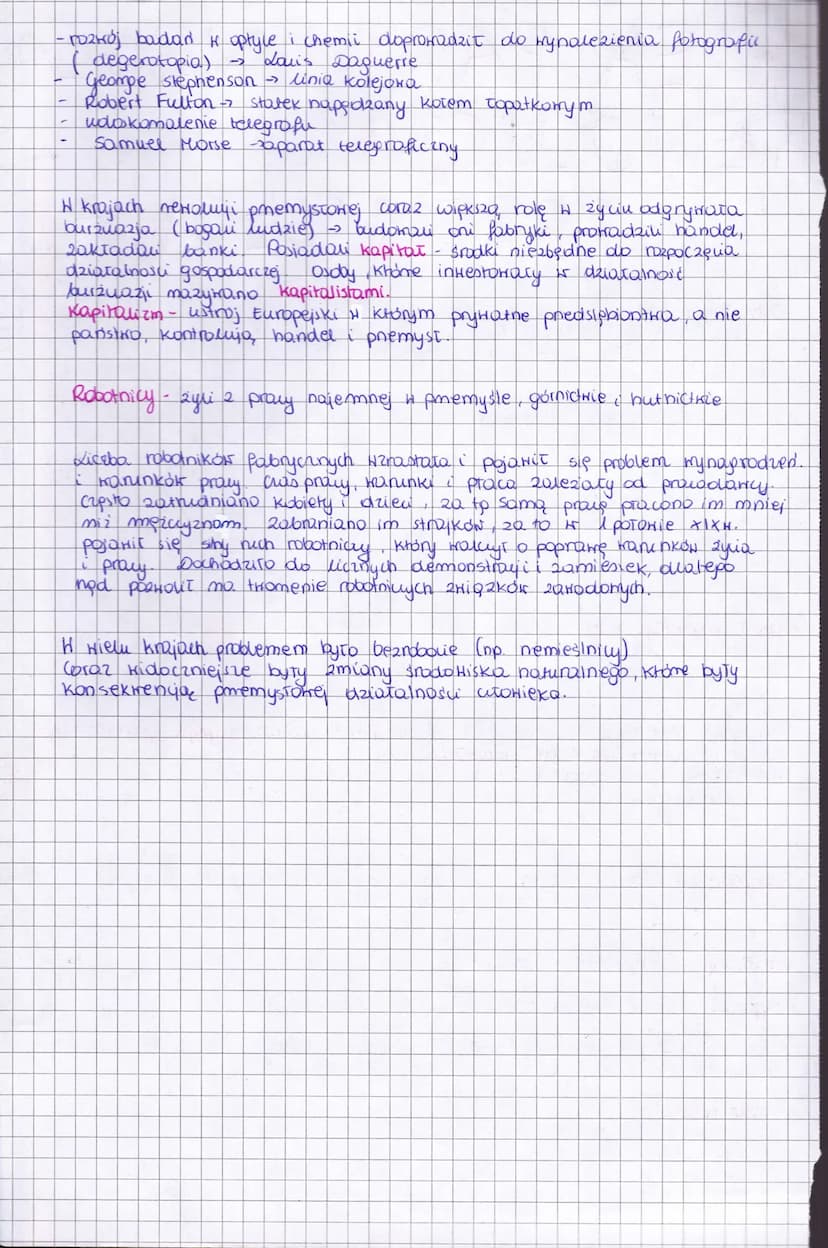 - rozwój badań w optyce i chemii doprowadził do wynalezienia fotografii
( degerotopia) → Louis Daguerre
- George Stephenson → linia kolejowa
- Robert Fulton → statek napędzany kołem łopatkowym
- udoskonalenie telegrafu
- Samuel Morse → aparat telegraficzny
W krajach rewolucji przemysłowej coraz większą rolę w życiu odgrywała
burżuazja (bogaci ludzie) → budowali oni fabryki, prowadzili handel,
zakładali banki. Posiadali kapitał - środki niezbędne do rozpoczęcia
działalności gospodarczej. Osoby, które inwestowały w działalność
burżuazji nazywano kapitalistami.
Kapitalizm - ustrój Europejski w którym prywatne przedsiębiorstwa, a nie
państwo, kontrolują handel i przemysł.
Robotnicy - żyli z pracy najemnej w przemyśle, górnictwie i hutnictwie
Liczba robotników fabrycznych wzrastała i pojawił się problem wynagrodzeń.
i warunków pracy. Czas pracy, warunki i płaca zależały od pracodawcy.
Często zatrudniano kobiety i dzieci, za tę samą pracę płacono im mniej
niż mężczyznom. Zabraniano im strajków, za to w 1 połowie XIXw.
pojawił się silny ruch robotniczy, który walczył o poprawę warunków życia
i pracy. Dochodziło do licznych demonstracji i zamieszek, dlatego
rząd pozwolił na tworzenie robotniczych związków zawodowych.
W wielu krajach problemem było bezrobocie (np. rzemieślnicy)
Coraz widoczniejsze były zmiany środowiska naturalnego, które były
konsekwencją przemysłowej działalności człowieka.